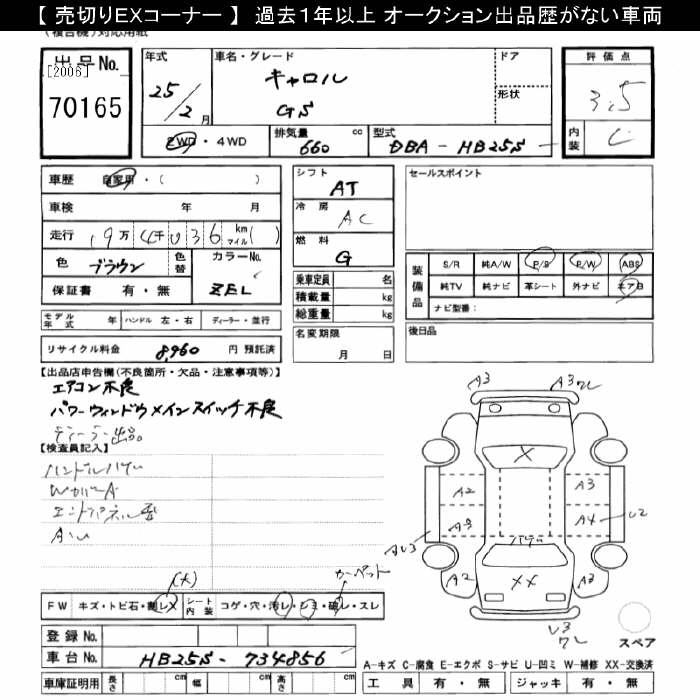 【 売切りEXコーナー 】 過去1年以上 オークション出品歴がない車両
(複合機)対応用紙
出品No.
[2006]
70165
年式
25/2月
車名・グレード
キャロル
GS
ドア
形状
評価点
3.5
内装
C
2WD・4WD
排気量 cc
660
型式
DBA-HB25S
車歴 自家用・( )
車検 年 月
走行 19万4千036 km マイル( )
色 ブラウン 色替
カラーNo. ZEL
保証書 有・無
シフト
AT
冷房
AC
燃料
G
乗車定員 名
積載量 kg
総重量 kg
セールスポイント
装備品
S/R 純A/W P/S P/W ABS
純TV 純ナビ 革シート 外ナビ エアB
ナビ型番:
モデル年式 年 ハンドル 左・右 ディーラー・並行
リサイクル料金 8,960 円 預託済
名変期限
月 日
後日品
【出品店申告欄(不良箇所・欠品・注意事項等)】
エアコン不良
パワーウィンドウメインスイッチ不良
ディーラー出品。
【検査員記入】
WカバーA
A3
A3
A2
A3
A3
A4
U2
AU3
A2
A3
U3
X
XX
FW キズ・トビ石・割レX
(X)
シート内装 コゲ・穴・汚レ・シミ・破レ・スレ
カーペット
スペア
登録No.
車台No. HB25S-734856
A-キズ C-腐食 E-エクボ S-サビ U-凹ミ W-補修 XX-交換済
車庫証明用 長さ cm 幅 cm 高さ cm
工具 有・無 ジャッキ 有・無